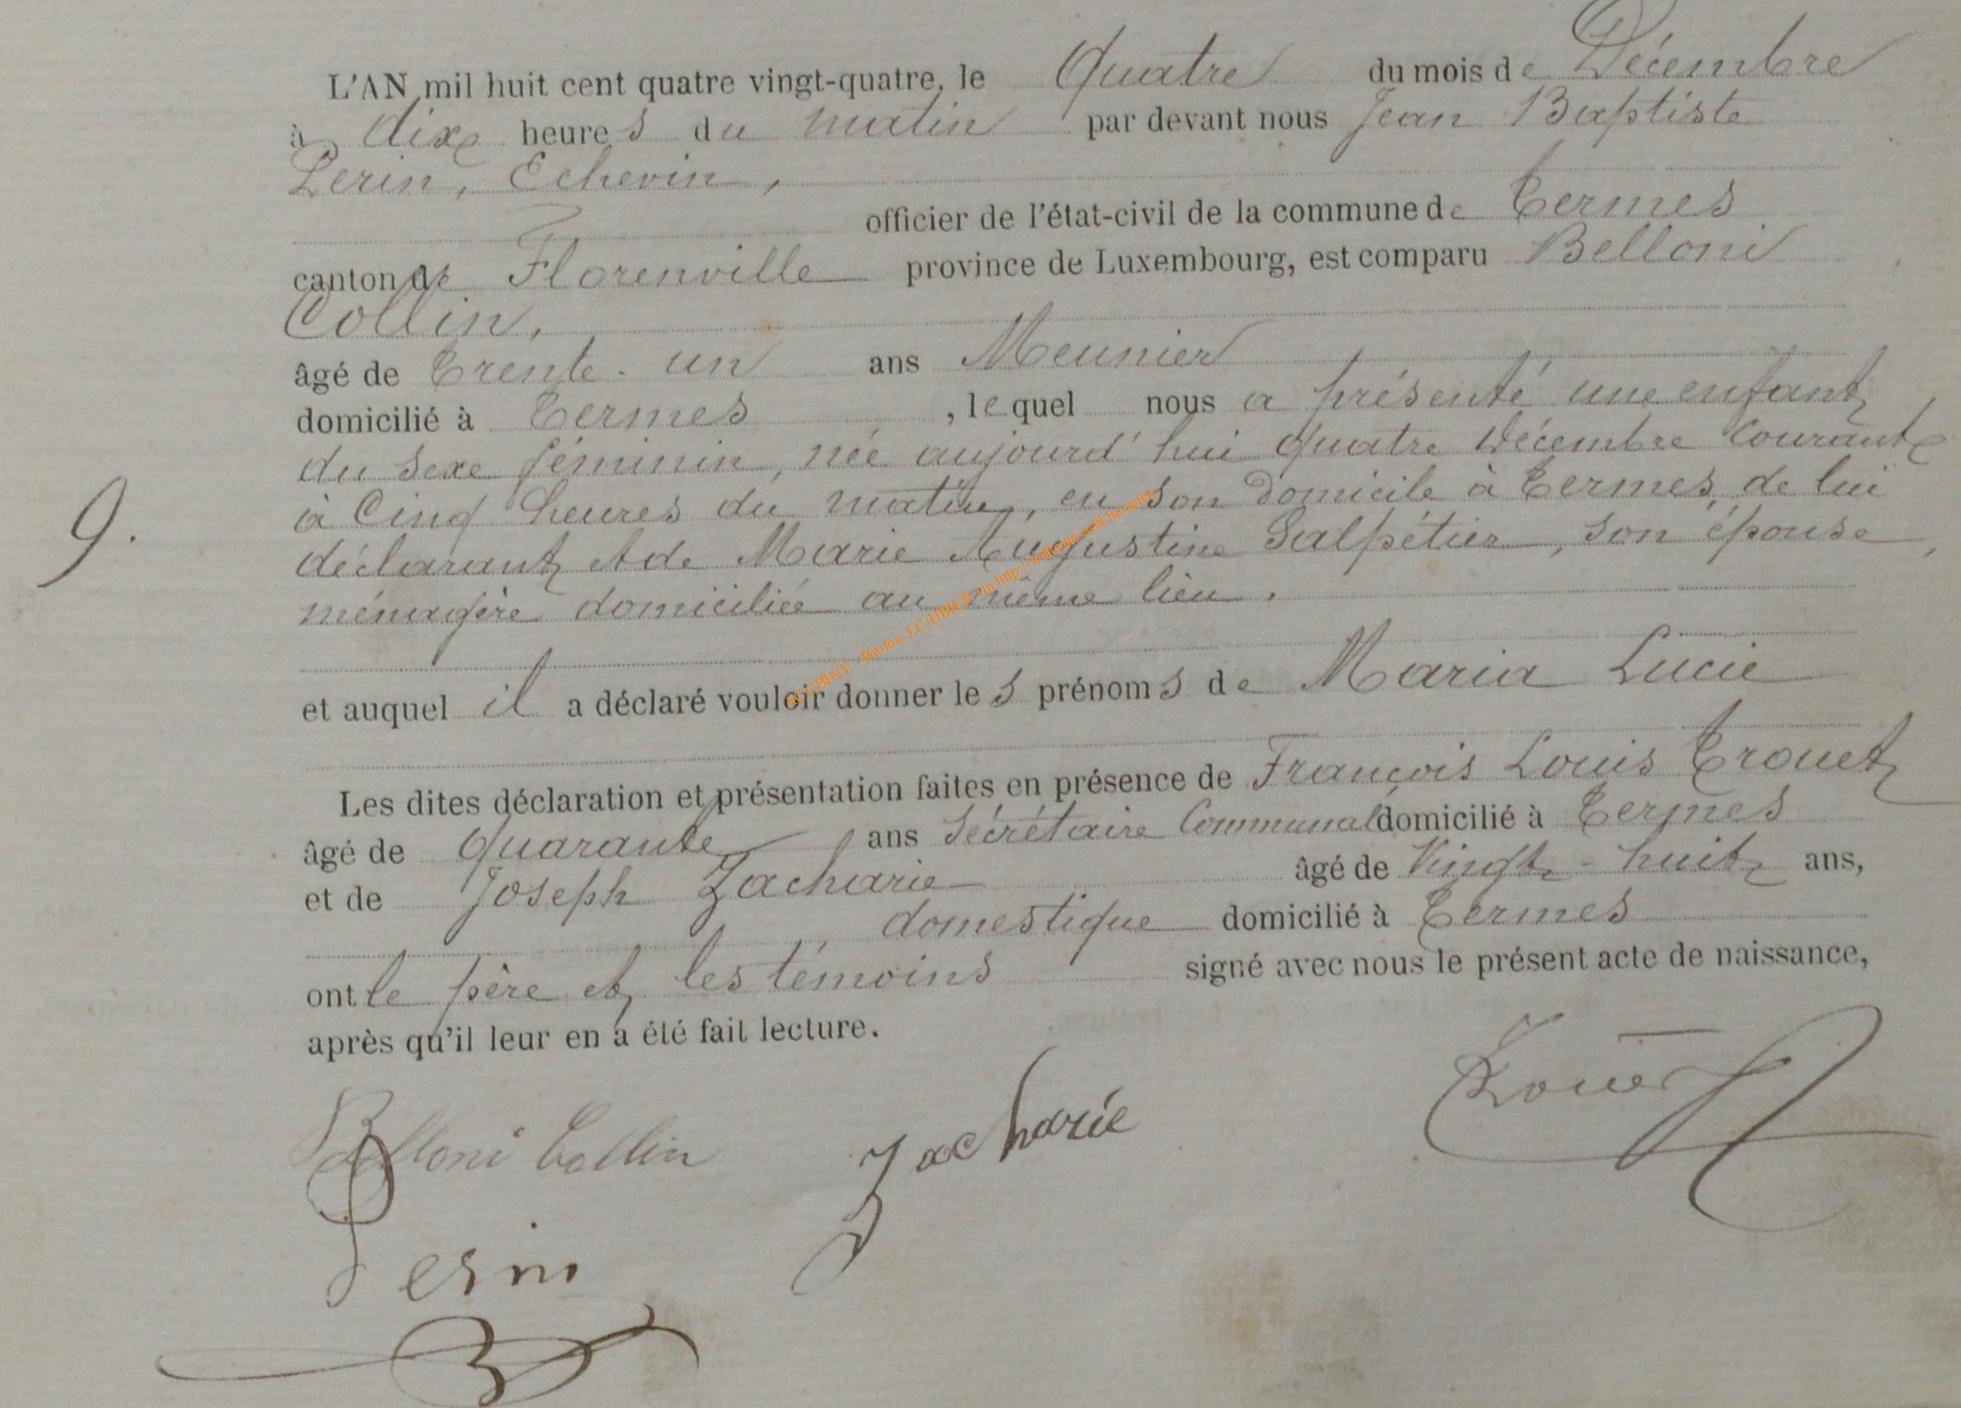 L'AN mil huit cent quatre vingt-quatre, le Quatre du mois de Décembre
à dix heures du matin par devant nous Jean Baptiste
Perin, Echevin,
officier de l'état-civil de la commune de Termes
canton de Florenville province de Luxembourg, est comparu Belloni
Collin,
âgé de Trente-un ans Meunier
domicilié à Termes, lequel nous a présenté une enfant
du sexe féminin, née aujourd'hui quatre Décembre courant
9. à Cinq heures du matin, en son domicile à Termes, de lui
déclarant et de Marie Augustine Salpétier, son épouse,
ménagère domiciliée au même lieu.
et auquel il a déclaré vouloir donner les prénoms de Maria Lucie
Les dites déclaration et présentation faites en présence de François Louis Trouet
âgé de quarante ans Sécrétaire Communal domicilié à Termes
et de Joseph Zacharie âgé de Vingt-huit ans,
domestique domicilié à Termes
ont le père et les témoins signé avec nous le présent acte de naissance,
après qu'il leur en a été fait lecture.
Belloni Collin Zacharie Trouet
Perin